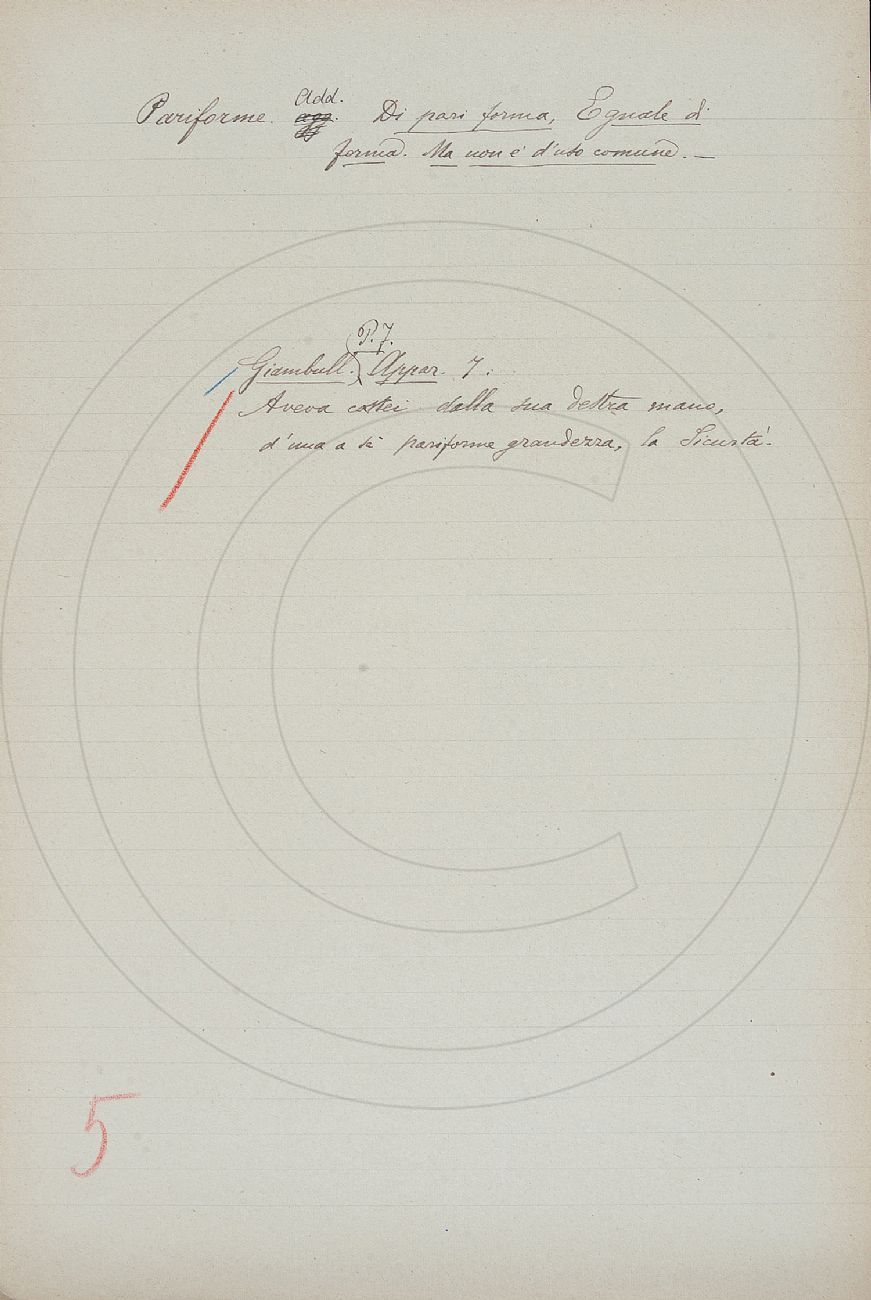 Pariforme. Add. Di pari forma, Eguale di
forma. Ma non è d'uso comune. —
P. 7.
Giambull. Appar. 7.
Aveva costei dalla sua destra mano,
d'una a sè pariforme grandezza, la Sicurtà.
5